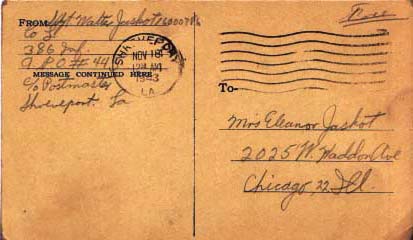 FROM Sgt Walter Jashot 16000786
Co I
386 Inf.
A.P.O # 44
MESSAGE CONTINUED HERE
c/o Postmaster
Shreveport, La
SHREVEPORT
NOV 18
12 AM
1943
LA.
Free
To
Mrs Eleanor Jashot
2025 W. Haddon Ave
Chicago, 22, Ill.